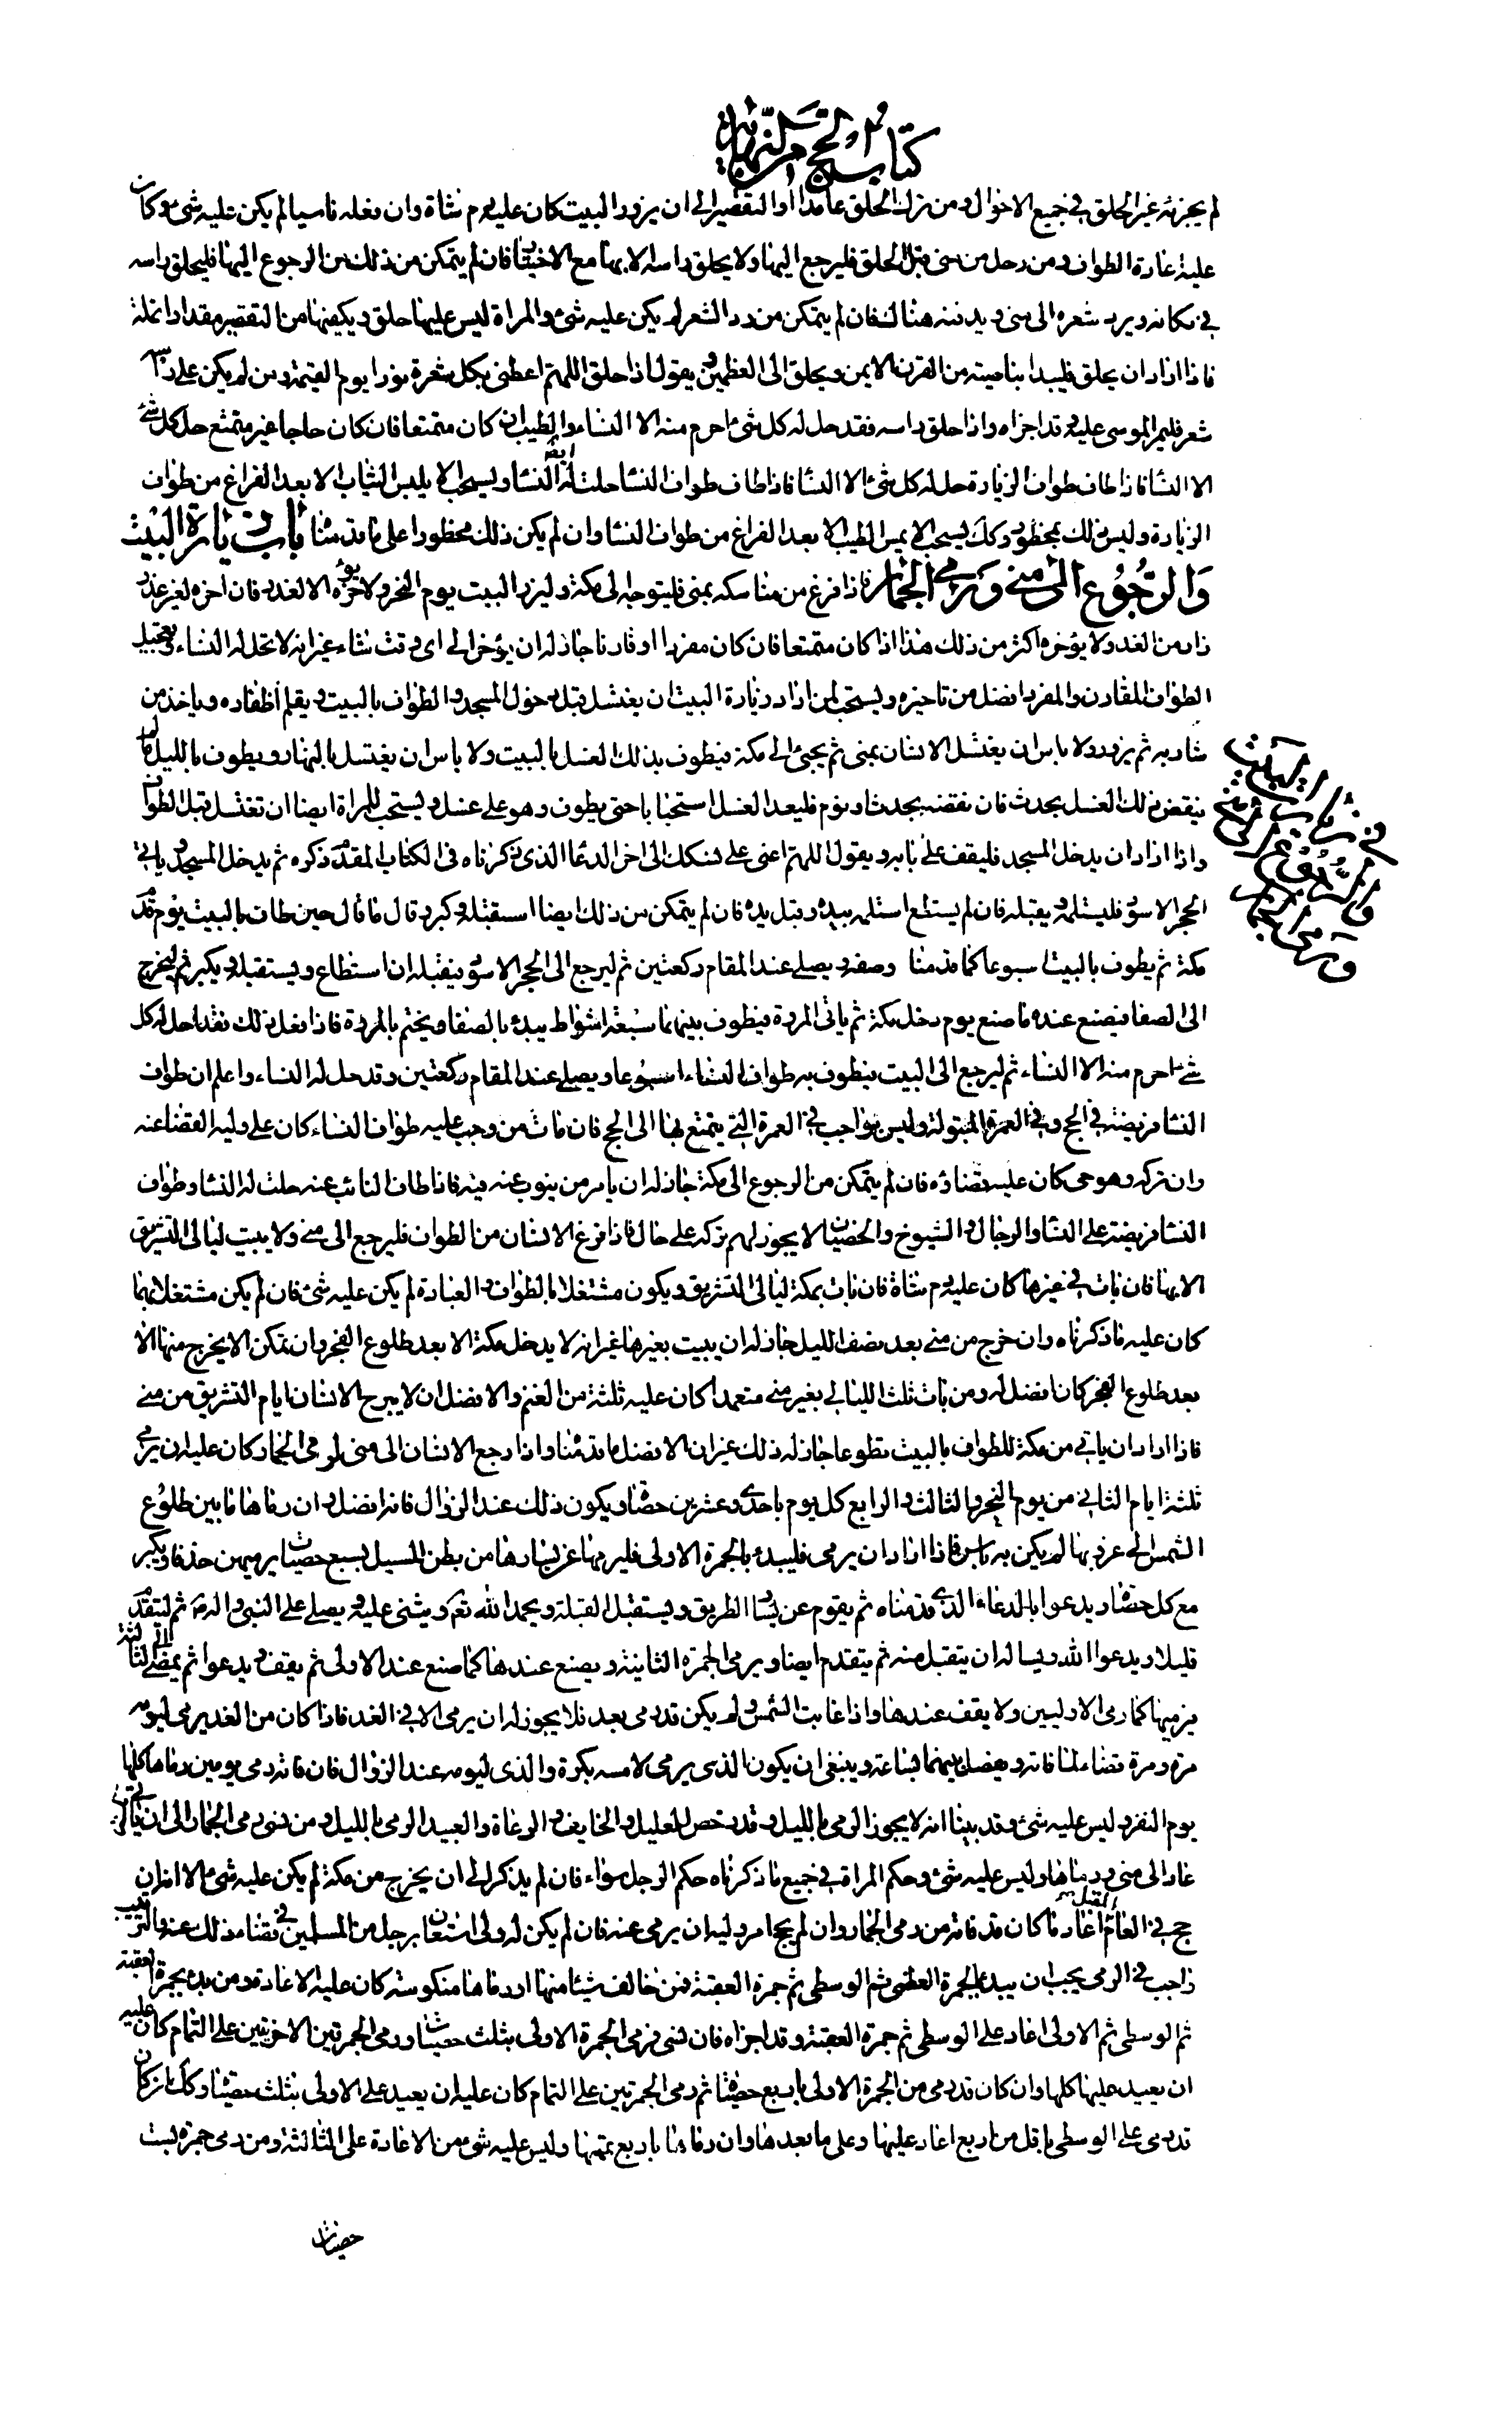 كتاب الحج من النهاية
لم يجزئه غير الحلق في جميع الاحوال ومن ترك الحلق عامدا او التقصير الى ان يزور البيت كان عليه دم شاة وان فعله ناسيا لم يكن عليه شئ وكان
عليه اعادة الطواف ومن رحل من منى قبل الحلق فليرجع اليها ولا يحلق راسه الا بها مع الاختيار فان لم يتمكن من ذلك من الرجوع اليها فليحلق راسه
في مكانه ويرد شعره الى منى ويدفنه هناك فان لم يتمكن من رد الشعر لم يكن عليه شئ والمراة ليس عليها حلق ويكفيها من التقصير مقدار انملة
فاذا اراد ان يحلق فليبدا بناصيته من القرن الايمن ويحلق الى العظمين ويقول اذا حلق اللهم اعطني بكل شعرة نورا يوم القيمة ومن لم يكن على راسه
شعر فليمر الموسى عليه وقد اجزاه واذا حلق راسه فقد حل له كل شئ احرم منه الا النساء والطيب ان كان متمتعا فان كان حاجا غير متمتع حل له كل شئ
الا النسا فاذا طاف طواف الزيارة حل له كل شئ الا النسا فاذا طاف طواف النسا حلت له ايضا النسا ويستحب الا يلبس الثياب الا بعد الفراغ من طواف
الزيارة وليس ذلك بمحظور وكك يستحب الا يمس الطيب الا بعد الفراغ من طواف النسا وان لم يكن ذلك محظورا على ما قدمنا باب زيارة البيت
والرجوع الى منى ورمي الجمار فاذا فرغ من مناسكه بمنى فليتوجه الى مكة وليزر البيت يوم النحر ولا يؤخره الا لعذر فان اخره لغير عذر
زار من الغد ولا يؤخره اكثر من ذلك هذا اذا كان متمتعا فان كان مفردا او قارنا جاز له ان يؤخر الى اي وقت شاء غير انه لا تحل له النساء وتعجيل
الطواف للقارن والمفرد افضل من تاخيره ويستحب لمن اراد زيارة البيت ان يغتسل قبل دخول المسجد والطواف بالبيت ويقلم أظفاره وياخذ من
شاربه ثم يزور ولا باس ان يغتسل الانسان بمنى ثم يجئ الى مكة فيطوف بذلك الغسل بالبيت ولا باس ان يغتسل بالنهار ويطوف بالليل ما لم
ينقض ذلك الغسل بحدث فان نقضه بحدث او نوم فليعد الغسل استحبابا حتى يطوف وهو على غسل ويستحب للمراة ايضا ان تغتسل قبل الطواف
واذا اراد ان يدخل المسجد فليقف على بابه ويقول اللهم اعني على نسكك الى اخر الدعا الذي ذكرناه في الكتاب المقدم ذكره ثم يدخل المسجد وياتي
الحجر الاسود فليستلمه ويقبله فان لم يستطع استلمه بيده وقبل يده فان لم يتمكن من ذلك ايضا استقبله وكبر وقال ما قال حين طاف بالبيت يوم قدم
مكة ثم يطوف بالبيت اسبوعا كما قدمنا وصفه ويصلي عند المقام ركعتين ثم ليرجع الى الحجر الاسود فيقبله ان استطاع ويستقبله ويكبر ثم ليخرج
الى الصفا فيصنع عنده ما صنع يوم دخل مكة ثم ياتي المروة فيطوف بينهما سبعة اشواط يبدء بالصفا ويختم بالمروة فاذا فعل ذلك فقد احل له كل
شئ احرم منه الا النساء ثم ليرجع الى البيت فيطوف به طواف النساء اسبوعا ويصلي عند المقام ركعتين وقد حل له النساء واعلم ان طواف
النسا فريضة في الحج وفي العمرة المبتولة وليس بواجب في العمرة التي يتمتع بها الى الحج فان مات من وجب عليه طواف النساء كان على وليه القضا عنه
وان تركه وهو حي كان عليه قضاؤه فان لم يتمكن من الرجوع الى مكة جاز له ان يامر من ينوب عنه فيه فاذا طاف النائب عنه حلت له النسا وطواف
النسا فريضة على النسا والرجال والشيوخ والخصيان لا يجوز لهم تركه على حال فاذا فرغ الانسان من الطواف فليرجع الى منى ولا يبيت ليالى التشريق
الا بها فان بات في غيرها كان عليه دم شاة فان بات بمكة ليالى التشريق ويكون مشتغلا بالطواف والعبادة لم يكن عليه شئ فان لم يكن مشتغلا بهما
كان عليه ما ذكرناه وان خرج من منى بعد نصف الليل جاز له ان يبيت بغيرها غير انه لا يدخل مكة الا بعد طلوع الفجر وان تمكن الا يخرج منها الا
بعد طلوع الفجر كان افضل له ومن بات ثلث الليالي بغير منى متعمدا كان عليه ثلثة من الغنم والافضل ان لا يبرح الانسان ايام التشريق من منى
فاذا اراد ان ياتي من مكة للطواف بالبيت تطوعا جاز له ذلك غير ان الافضل ما قدمنا واذا رجع الانسان الى منى لرمي الجمار كان عليه ان يرمي
ثلثة ايام الثاني من يوم النحر والثالث والرابع كل يوم باحدى وعشرين حصاة ويكون ذلك عند الزوال فانه افضل وان رماها ما بين طلوع
الشمس الى غروبها لم يكن به باس فاذا اراد ان يرمي فليبدء بالجمرة الاولى فليرمها عن يسارها من بطن المسيل بسبع حصيات يرميهن حذفا ويكبر
مع كل حصاة ويدعوا بالدعاء الذي قدمناه ثم يقوم عن يسار الطريق ويستقبل القبلة ويحمد الله تعم ويثنى عليه ويصلي على النبي واله ثم ليتقدم
قليلا ويدعوا الله ويساله ان يتقبل منه ثم يتقدم ايضا ويرمي الجمرة الثانية ويصنع عندها كما صنع عند الاولى ثم يقف ويدعوا ثم يمضي الى الثالثة
فيرميها كما رمى الاوليين ولا يقف عندها واذا غابت الشمس ولم يكن قد رمى بعد فلا يجوز له ان يرمي الا في الغد فاذا كان من الغد يرمي ليومه
مرة ومرة قضاء لما فاته ويفصل بينهما بساعة وينبغي ان يكون الذي يرمي لامسه بكرة والذي ليومه عند الزوال فان فاته رمى يومين رماها كلها
يوم النفر وليس عليه شئ وقد بينا انه لا يجوز الرمي بالليل وقد رخص للعليل والخايف والرعاة والعبيد الرمي بالليل ومن نسي رمي الجمار الى ان ياتي مكة
عاد الى منى ورماها وليس عليه شئ وحكم المراة في جميع ما ذكرناه حكم الرجل سواء فان لم يذكر الى ان يخرج من مكة لم يكن عليه شئ الا انه ان
حج في العام المقبل اعاد ما كان قد فاته من رمي الجمار وان لم يحج امر وليه ان يرمي عنه فان لم يكن له ولي استعان برجل من المسلمين في قضاء ذلك عنه والترتيب
واجب في الرمي يجب ان يبدء بالجمرة العظمى ثم الوسطى ثم جمرة العقبة فمن خالف شيئا منها او رماها منكوسة كان عليه الاعادة ومن بدء بجمرة العقبة
ثم الوسطى ثم الاولى اعاد على الوسطى ثم جمرة العقبة وقد اجزاه فان نسي فرمى الجمرة الاولى بثلث حصيات ورمى الجمرتين الاخريين على التمام كان عليه
ان يعيد عليها كلها وان كان قد رمى من الجمرة الاولى باربع حصيات ثم رمى الجمرتين على التمام كان عليه ان يعيد على الاولى بثلث حصيات وكك ان كان
قد رمى على الوسطى باقل من اربع اعاد عليها وعلى ما بعدها وان رماها باربع تممها وليس عليه شئ من الاعادة على الثالثة ومن رمى جمرة بست
حصيات
في زيارة البيت
والرجوع الى منى
ورمي الجمار